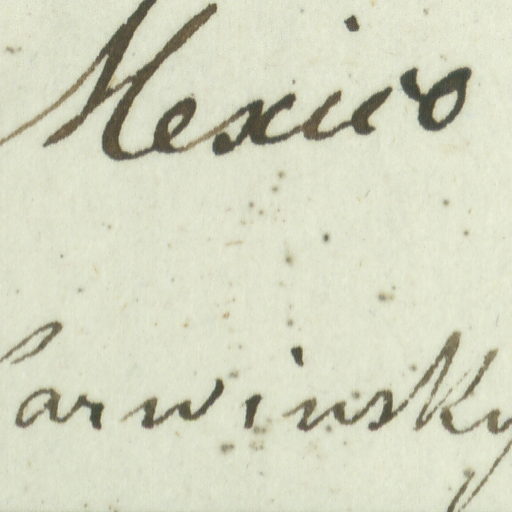 Mexico
Karwinsky